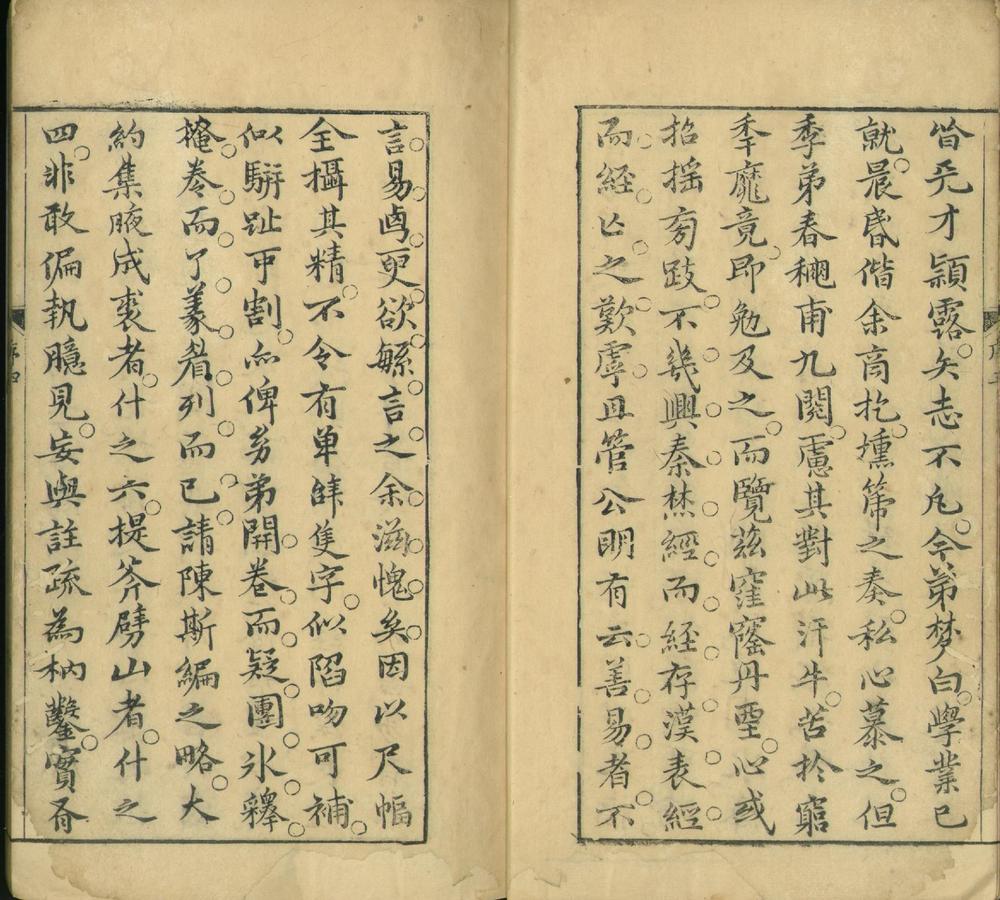 皆禿才穎露矣志不凡令弟梦白學業已
就晨昏偕余商扢壎箎之奏私心慕之但
季弟春穐甫九閱慮其對此汗牛苦於窮
季靡竟即勉及之而覽茲窪窿丹堊心或
招搖旁跂不幾興秦焚經而経存漢表經
而経亡之歎虖且管公明有云善易者不
言易卣更欲繇言之余滋愧矣因以尺幅
全攝其精不令有单辭隻字似䧟吻可補
似駢趾可割㸃俾乡弟開卷而疑團氷釋
掩卷而了義眉列而已請陳斯編之略大
約集腋成裘者什之六提斧劈山者什之
四非敢偏執臆見妄與註疏為枘鑿實胥
序四